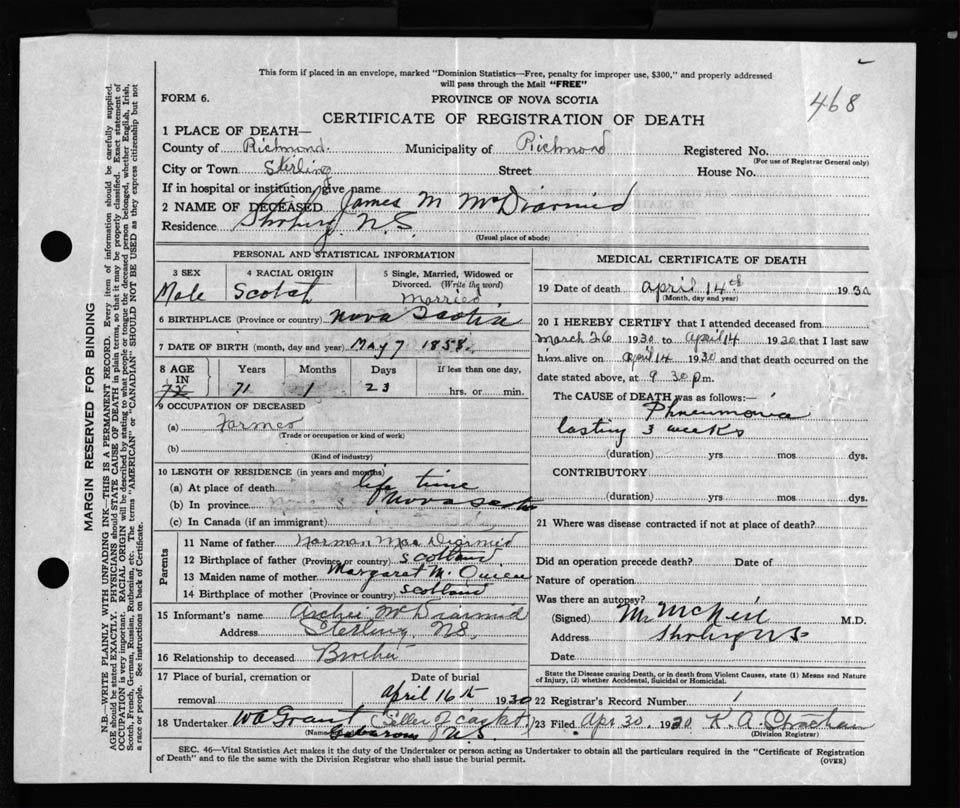 This form if placed in an envelope, marked "Dominion Statistics—Free, penalty for improper use, $300," and properly addressed
will pass through the Mail "FREE"
468
FORM 6.
PROVINCE OF NOVA SCOTIA
CERTIFICATE OF REGISTRATION OF DEATH
1 PLACE OF DEATH—
County of Richmond. Municipality of Richmond Registered No.
(For use of Registrar General only)
City or Town Sterling Street House No.
If in hospital or institution, give name
2 NAME OF DECEASED James M McDiarmid
Residence N.S.
(Usual place of abode)
PERSONAL AND STATISTICAL INFORMATION
3 SEX
Male
4 RACIAL ORIGIN
Scotch
5 Single, Married, Widowed or
Divorced. (Write the word)
Married
6 BIRTHPLACE (Province or country) Nova Scotia
7 DATE OF BIRTH (month, day and year) May 7 1858.
8 AGE IN Years Months Days If less than one day,
72 71 1 23 hrs. or min.
9 OCCUPATION OF DECEASED
(a) Farmer
(Trade or occupation or kind of work)
(b)
(Kind of industry)
10 LENGTH OF RESIDENCE (in years and months)
(a) At place of death life time
(b) In province Nova Scotia
(c) In Canada (if an immigrant)
Parents
11 Name of father Norman Mac Diarmid
12 Birthplace of father (Province or country) Scotland
13 Maiden name of mother Margaret M.
14 Birthplace of mother (Province or country) Scotland
15 Informant's name Archie McDiarmid
Address Sterling NS.
16 Relationship to deceased Brother
17 Place of burial, cremation or
removal
Date of burial
April 16th 1930
18 Undertaker WA Grant (Seller of casket)
(Name Gabarous N.S.
MEDICAL CERTIFICATE OF DEATH
19 Date of death April 14th 1930
(Month, day and year)
20 I HEREBY CERTIFY that I attended deceased from
March 26 1930 to April 14 1930 that I last saw
him alive on April 14 1930 and that death occurred on the
date stated above, at 9 30 p.m.
The CAUSE of DEATH was as follows:—
Phneumonia
lasting 3 weeks
(duration) yrs. mos. dys.
CONTRIBUTORY
(duration) yrs. mos. dys.
21 Where was disease contracted if not at place of death?
Did an operation precede death? Date of
Nature of operation
Was there an autopsy?
(Signed) M McNeil M.D.
Address NS
Date
State the Disease causing Death, or in death from Violent Causes, state (1) Means and Nature
of Injury, (2) whether Accidental, Suicidal or Homicidal.
22 Registrar's Record Number 1
23 Filed Apr 30 1930 K A Strachan
(Division Registrar)
SEC. 46—Vital Statistics Act makes it the duty of the Undertaker or person acting as Undertaker to obtain all the particulars required in the "Certificate of Registration
of Death" and to file the same with the Division Registrar who shall issue the burial permit.
(OVER)
MARGIN RESERVED FOR BINDING
N.B.—WRITE PLAINLY WITH UNFADING INK—THIS IS A PERMANENT RECORD. Every item of information should be carefully supplied.
AGE should be stated EXACTLY. PHYSICIANS should STATE CAUSE OF DEATH in plain terms, so that it may be properly classified. Exact statement of
OCCUPATION is very important. RACIAL ORIGIN will be described by stating to what people or tongue the deceased person belonged, whether English, Irish,
Scotch, French, German, Russian, Ruthenian, etc. The terms "AMERICAN" or "CANADIAN" SHOULD NOT BE USED as they express citizenship but not
a race or people. See instructions on back of Certificate.